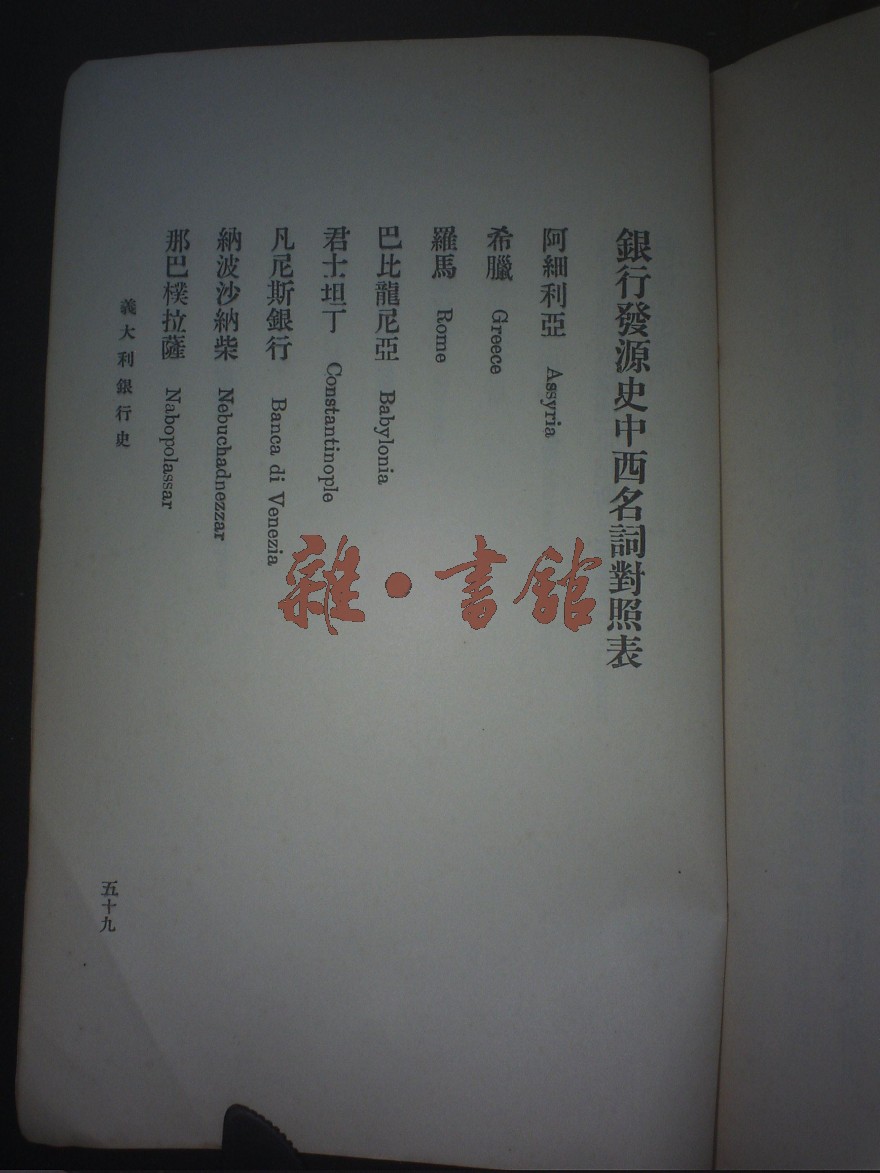 銀行發源史中西名詞對照表
阿細利亞 Assyria
希臘 Greece
羅馬 Rome
巴比龍尼亞 Babylonia
君士坦丁 Constantinople
凡尼斯銀行 Banca di Venezia
納波沙納柴 Nebuchadnezzar
那巴樸拉薩 Nabopolassar
義大利銀行史
五十九
雜·書館